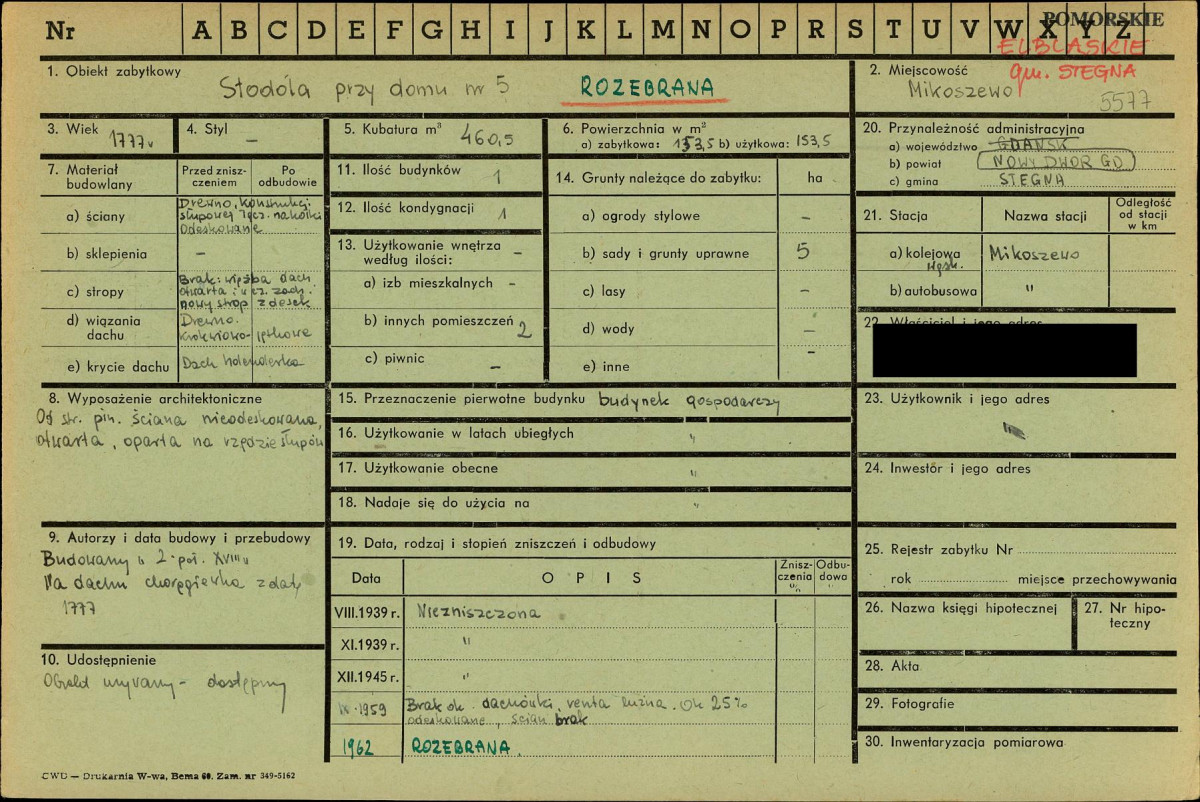 Nr A B C D E F G H I J K L M N O P R S T U V W X Y Z
POMORSKIE
ELBLĄSKIE
gm. STEGNA
1. Obiekt zabytkowy
Stodóła przy domu nr 5 ROZEBRANA
2. Miejscowość
Mikoszewo
5577
3. Wiek 1777
4. Styl —
5. Kubatura m³ 460,5
6. Powierzchnia w m²
a) zabytkowa: 153,5 b) użytkowa: 153,5
20. Przynależność administracyjna
a) województwo GDAŃSK
b) powiat NOWY DWÓR GD
c) gmina STEGNA
7. Materiał budowlany
Przed zniszczeniem
Po odbudowie
a) ściany Drewno, konstrukcj.
słupowej łącz. na kołki
Odeskowane
b) sklepienia —
c) stropy Brak: więźba dach
otwarta: w cz. zach.
nowy strop z desek
d) wiązania dachu Drewno.
krokwiowo-jętkowe
e) krycie dachu Dach holenderka
11. Ilość budynków 1
12. Ilość kondygnacji 1
13. Użytkowanie wnętrza —
według ilości:
a) izb mieszkalnych -
b) innych pomieszczeń 2
c) piwnic —
14. Grunty należące do zabytku: ha
a) ogrody stylowe —
b) sady i grunty uprawne 5
c) lasy —
d) wody —
e) inne —
21. Stacja Nazwa stacji Odległość od stacji w km
a) kolejowa wąsk. Mikoszewo
b) autobusowa "
22. Właściciel i jego adres
8. Wyposażenie architektoniczne
Od str. płn. ściana nieodeskowana,
otwarta, oparta na rzędzie słupów
15. Przeznaczenie pierwotne budynku budynek gospodarczy
16. Użytkowanie w latach ubiegłych "
17. Użytkowanie obecne "
18. Nadaje się do użycia na "
23. Użytkownik i jego adres
24. Inwestor i jego adres
9. Autorzy i data budowy i przebudowy
Budowany w 2 poł. XVIII w
Na dachu chorągiewka z datą
1777
10. Udostępnienie
dostępny
19. Data, rodzaj i stopień zniszczeń i odbudowy
Data OPIS Zniszczenia % Odbudowa %
VIII.1939 r. Niezniszczona
XI.1939 r. "
XII.1945 r. "
IX.1959 Brak ok. dachówki, reszta luźna. Ok 25%
odeskowane, ścian brak
1962 ROZEBRANA.
25. Rejestr zabytku Nr
rok miejsce przechowywania
26. Nazwa księgi hipotecznej
27. Nr hipoteczny
28. Akta
29. Fotografie
30. Inwentaryzacja pomiarowa
CWD — Drukarnia W-wa, Bema 60. Zam. nr 349-5162